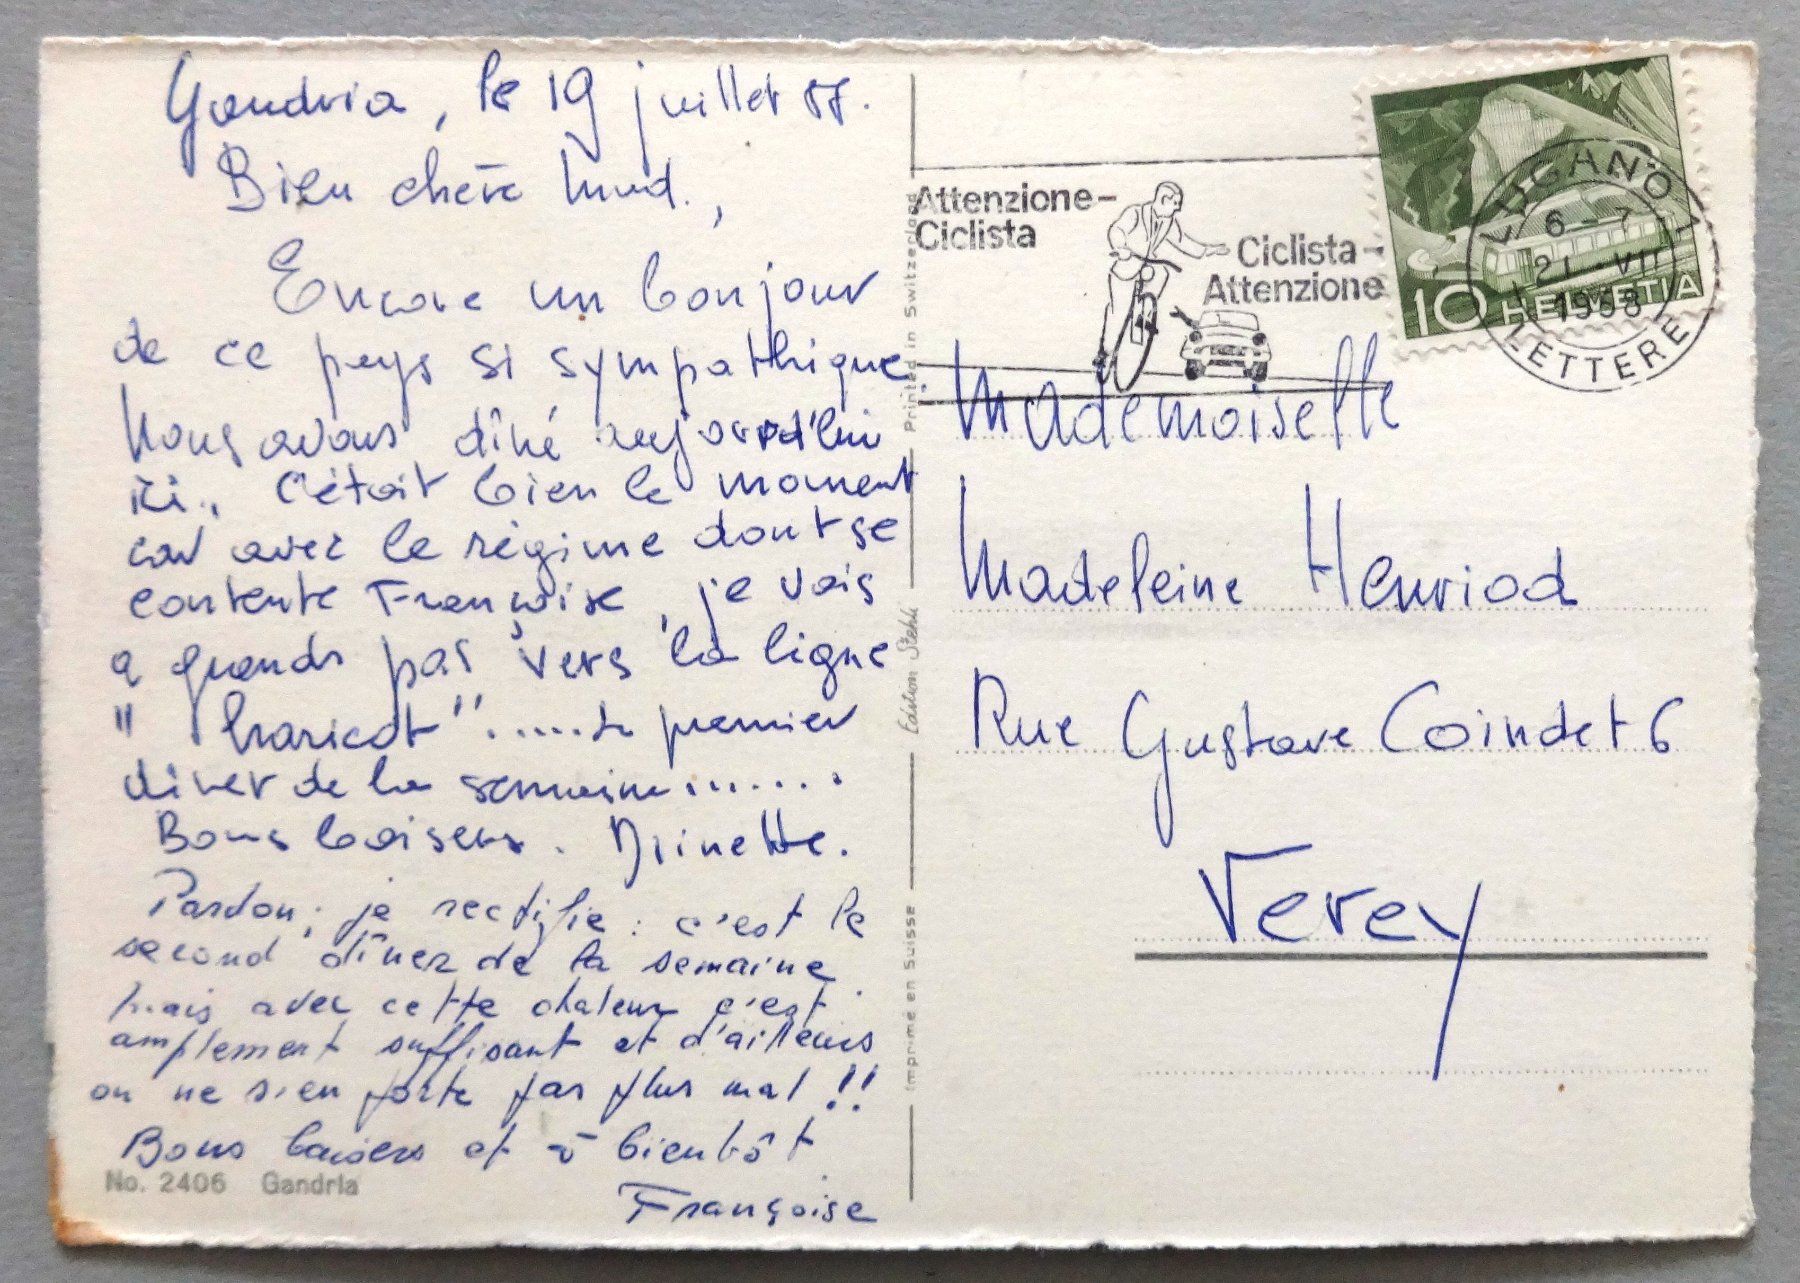 Gandria, le 19 juillet 58.
Bien chère Mad.,
Encore un bonjour
de ce pays si sympathique.
Nous avons dîné aujourd'hui
ici., C'était bien le moment
car avec le régime dont se
contente Françoise, je vais
a grands pas vers la ligne
"haricot"..... Le premier
dîner de la semaine.......
Bons baisers.
Pardon; je rectifie: c'est le
second dîner de la semaine
mais avec cette chaleur c'est
amplement suffisant et d'ailleurs
on ne s'en porte pas plus mal!!
Bons baisers et à bientôt.
Françoise
No. 2406 Gandria
Printed in Switzerland
Edition Stehli
Imprimé en Suisse
Attenzione-
Ciclista
Ciclista-
Attenzione
10 HELVETIA
LUGANO 1
6-7
21.VII
1958
LETTERE
Mademoiselle
Madeleine Henriod
Rue Gustave Coindet 6
Vevey